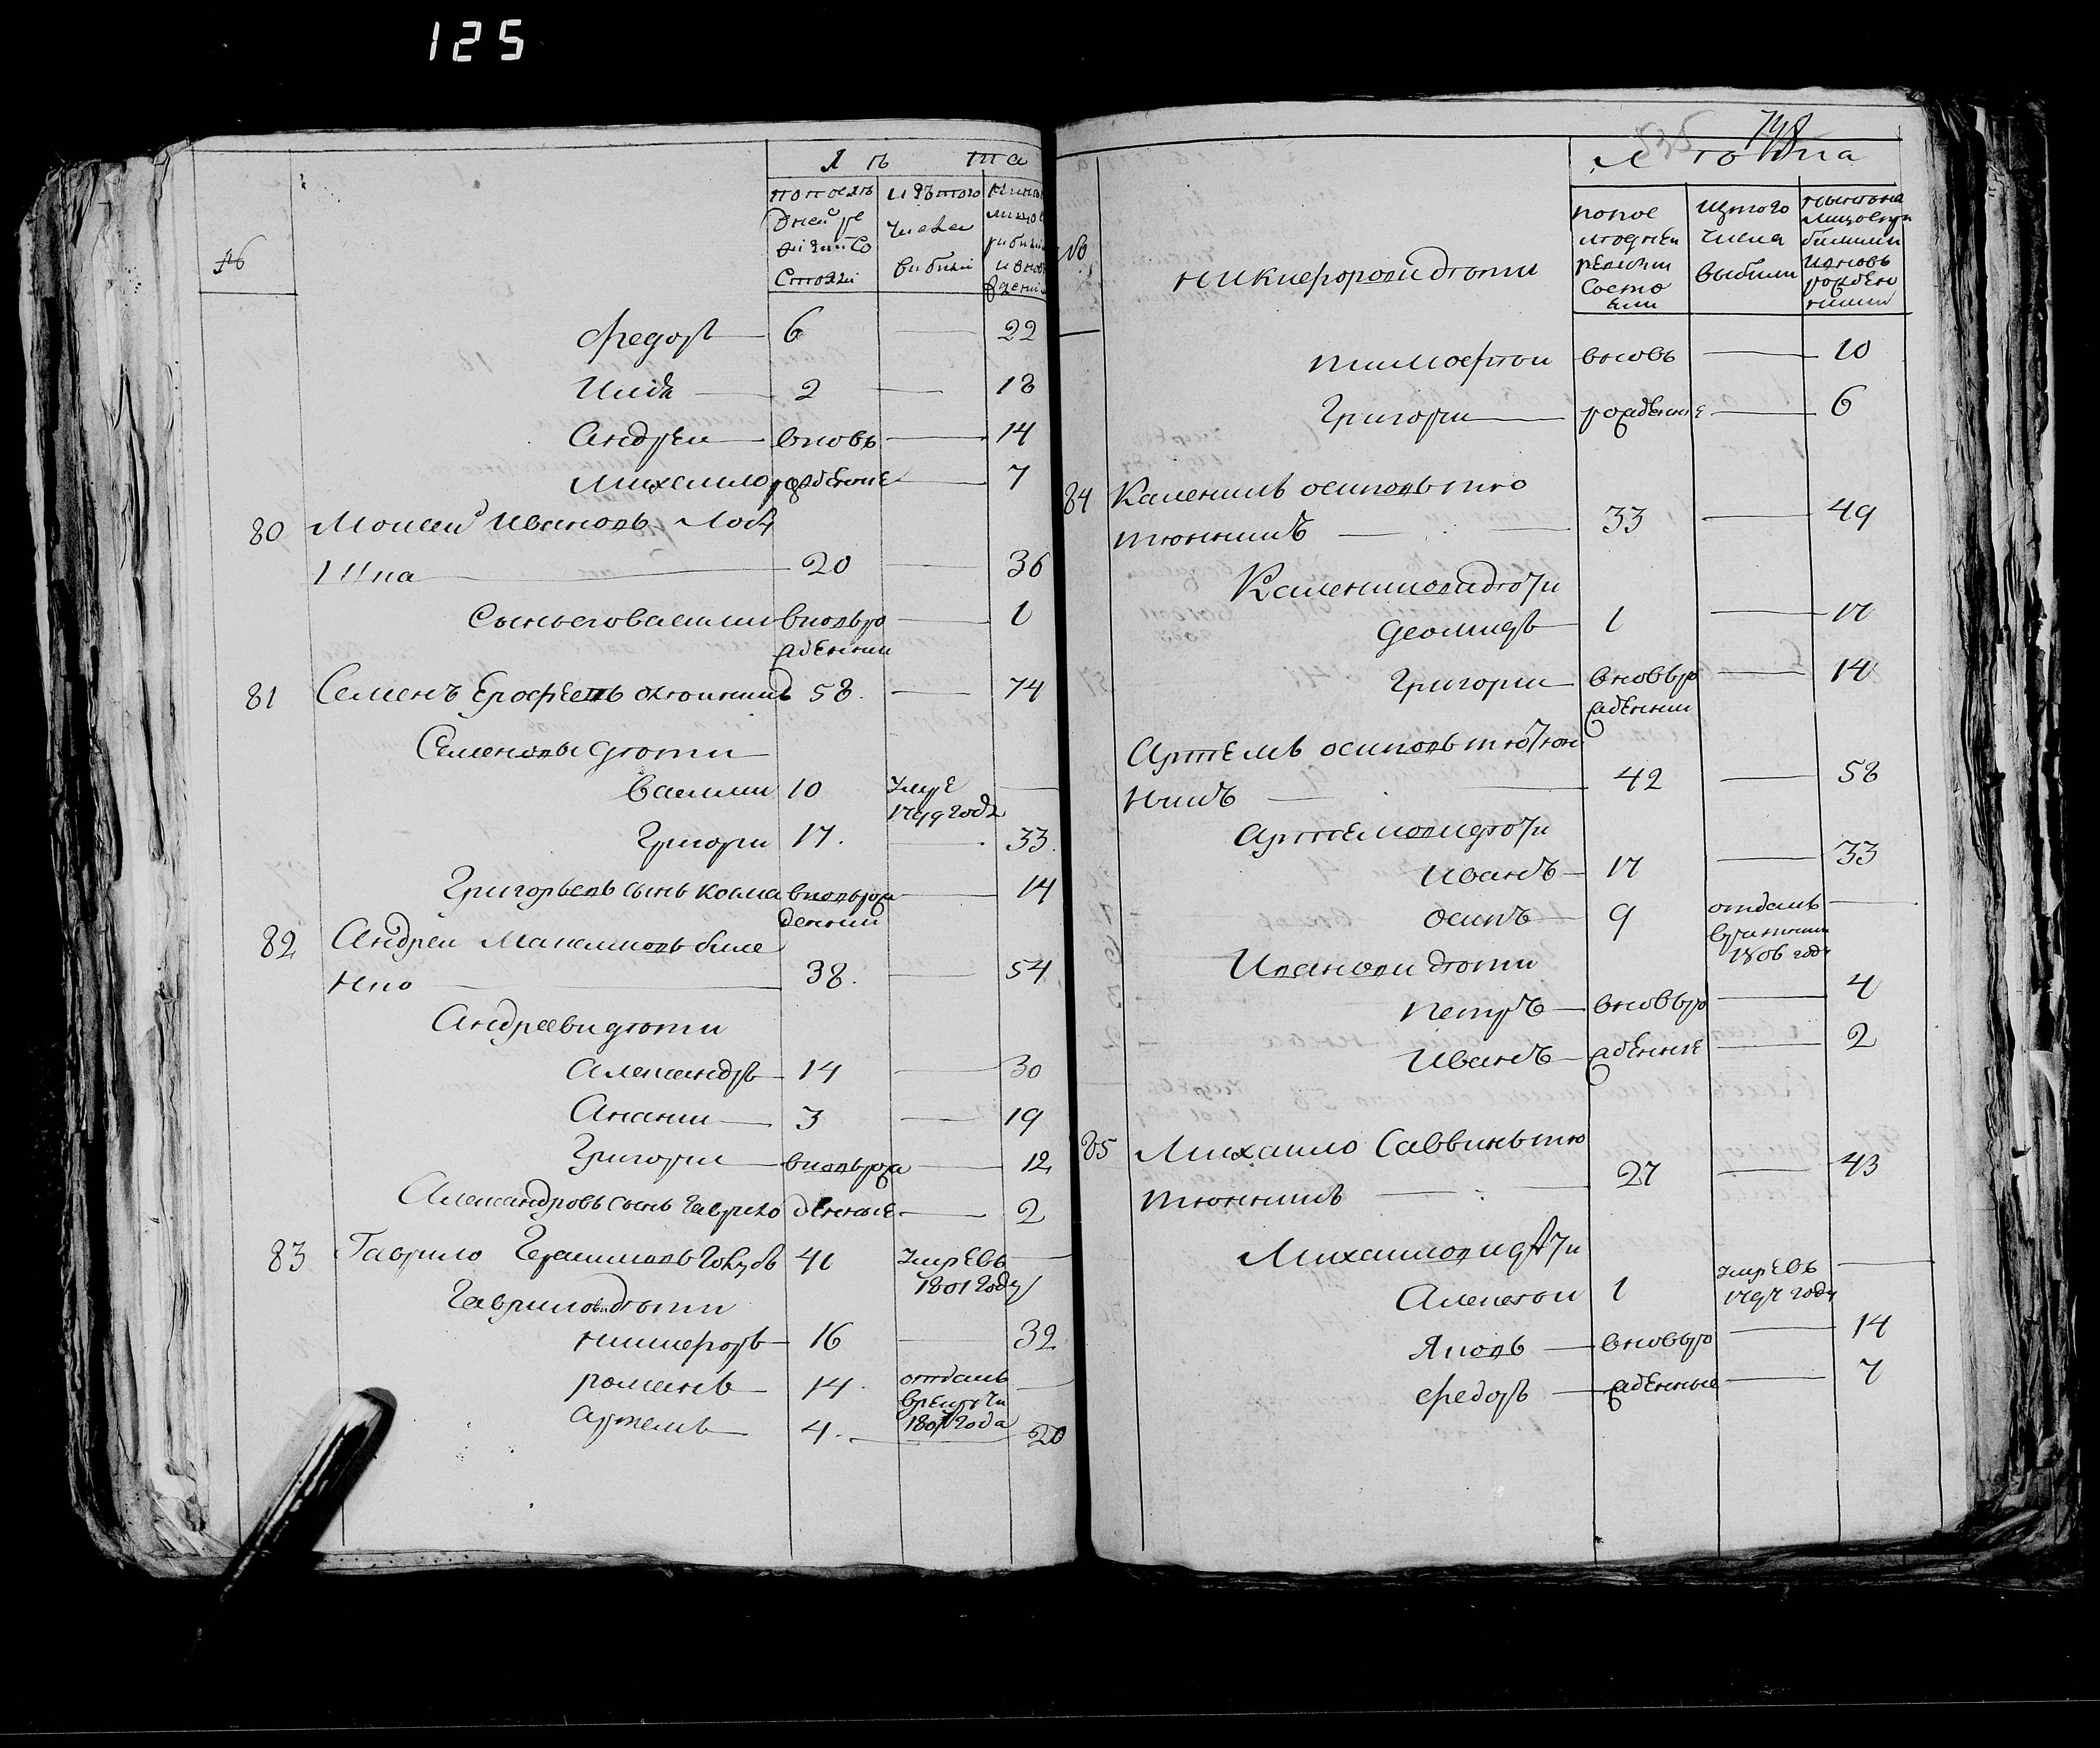 125
Лѣ та
№
по послѣ
дней ре
визіи со
стояли
изъ того
числа
выбыли
Федоръ 6 — 22
Илія 2 — 18
Андреи вновь — 14
Михаило рожденные — 7
80 Моисей Ивановъ
20 — 36
Сынъ его васили вновь ро — 1
жденни
81 Семенъ Ерофеевъ 58. — 74
Семеновы дѣти
васили 10 умре —
1799 года
Григори 17. — 33.
Григорьевъ сынъ косма вновь рож — 14
денний
82 Андреи Максимовъ
38. — 54
Андрееви дѣти
Александръ 14 — 30
Анании 3 — 19
Григори вновь рож — 12
Александровъ сынъ гаврило денные — 2
83 Гаврило Герасимовъ 41 умревъ —
1801 году
Гаврилови дѣти
никифоръ 16 — 32
романъ 14. отданъ —
в рекрути
1807 года
артемъ 4. — 20
748
Лѣта
№
никифорови дѣти
по пос
лѣдней
ревизии
состо
яли
из того
числа
выбыли
ныне на
лицо с при
былыми
и вновь
рожден
ными
тимофеи вновь — 10
Григори рожденние — 6
84 Калениъ осиповъ тю
тюнникъ — 33 — 49
Каленикови дѣти
Деомидъ 1 — 17
Григори вновь ро — 14
жденни
Артемъ осиповъ тютюн
никъ — 42 — 58
Артемови дѣти
Иванъ 17 — 33
осипъ 9 отданъ —
1806 году
Иванови дѣти
петръ вновь ро — 4
Иванъ жденние — 2
85 Михаило Саввинъ тю
тюнникъ — 27 — 43
Михаилови дѣти
Алексѣи 1 умревъ —
1797 году
Яковъ вновь ро — 14
Федоръ жденные — 7